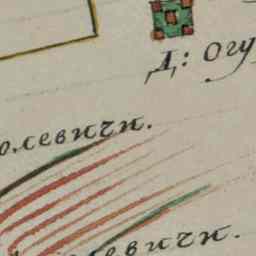 Д: Огу
олевичи.
левичи.